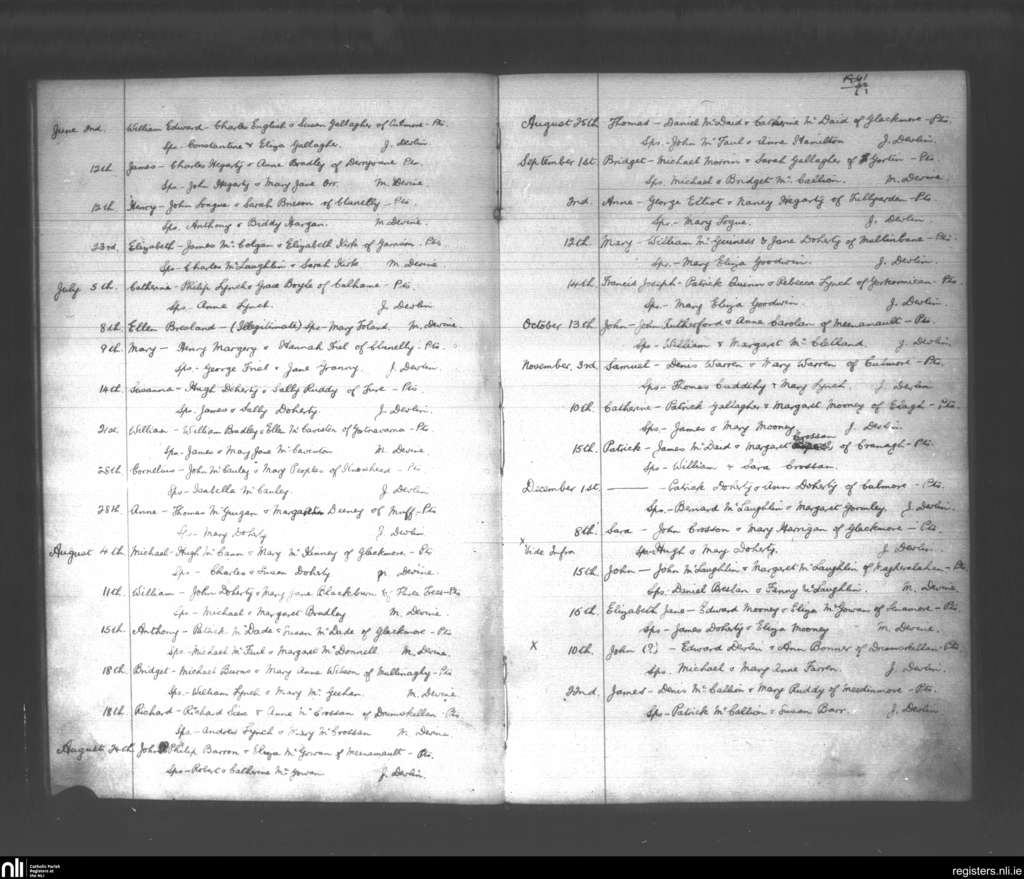 June 2nd. William Edward - Charles English & Susan Gallagher of Culmore - Pts.
Sps. Constantine & Eliza Gallagher. J. Devlin.
12th. James - Charles Hegarty & Anne Bradley of Pts.
Sps - John Hegarty & Mary Jane Orr. M. Devine.
12th. Henry - John Longue & Sarah Brieson of Clunelly - Pts.
Sps. Anthony & Biddy Hargan. M. Devine.
23rd. Elizabeth - James McColgan & Elizabeth Kirk of - Pts
Sps - Charles McLaughlin & Sarah Kirk M. Devine.
July 5th. Catherine - Philip Lynch & Grace Boyle of Culhame - Pts.
Sps. Anne Lynch. J. Devlin
8th. Ellen Breeland - (Illegitimate) Sps - Mary Toland. M. Devine
9th. Mary - Henry Margery & Hannah Friel of Clunelly - Pts.
Sps. George Friel & Jane Granny. J. Devlin.
14th. Susanna - Hugh Doherty & Sally Ruddy of - Pts.
Sps. James & Sally Doherty. J. Devlin.
21st. William - William Bradley & Ellen of Gortnavarna - Pts
Sps - James & Mary Jane M. Devine
28th. Cornelius - John McCauley & Mary Peoples of - Pts
Sps - Isabella McCauley. J. Devlin
28th. Anne - Thomas McGuigan & Margaret Deeney of Muff - Pts
Sps - Mary Doherty J. Devlin
August 4th. Michael - Hugh McCann & Mary McKenney of Glackmore - Pts
Sps - Charles & Susan Doherty M. Devine.
11th. William - John Doherty & Mary Jane Blackburn of Three Trees - Pts
Sps - Michael & Margaret Bradley M. Devine.
15th. Anthony - Patrick McDade & Susan McDade of Glackmore - Pts
Sps - Michael McFaul & Margaret McDonnell M. Devine.
18th. Bridget - Michael Burns & Mary Anne Wilson of Mullinaghy - Pts
Sps. - William Lynch & Mary McGeehan. M. Devine
18th. Richard - Richard & Anne McCrossan of Drumskellan - Pts
Sps - Andrew Lynch & Mary McCrossan M. Devine
August 24th. John Philip Barron & Eliza McGowan of Meenamault - Pts.
Sps - Robert & Catherine McGowan J. Devlin.
August 25th Thomas - Daniel McDaid & Catherine McDaid of Glackmore - Pts.
Sps. - John McFaul & Anne Hamilton J. Devlin.
September 1st. Bridget - Michael Morrin & Sarah Gallagher of Gortin - Pts.
Sps. Michael & Bridget McCallion. M. Devine
2nd. Anne - George Elliot & Nancy Hegarty of Tullyarden - Pts
Sps. - Mary Logue. J. Devlin
12th. Mary - William McGuiness & Jane Doherty of Mullinbane - Pts.
Sps. - Mary Eliza Goodwin. J. Devlin.
14th. Francis Joseph - Patrick Quinn & Rebecca Lynch of Gortcormican - Pts.
Sps. - Mary Eliza Goodwin. J. Devlin.
October 13th. John - John Rutherford & Anne Carolan of Meenamault - Pts.
Sps - William & Margaret McClelland. J. Devlin.
November. 3rd. Samuel - Denis Warren & Mary Warren of Culmore - Pts.
Sps - Thomas Cuddihy & Mary Lynch. J. Devlin
10th. Catherine - Patrick Gallagher & Margaret Mooney of Elagh - Pts.
Sps - James & Mary Mooney J. Devlin.
15th. Patrick - James McDaid & Margaret Crossan of Cranagh - Pts.
Sps - William & Sara Crossan.
December 1st. - Patrick Doherty & Ann Doherty of Culmore - Pts.
Sps - Bernard McLaughlin & Margaret Gormley. J. Devlin.
8th. Sara - John Crossan & Mary Harrigan of Glackmore - Pts.
x Vide Infra Sps - Hugh & Mary Doherty. J. Devlin.
15th. John - John McLaughlin & Margaret McLaughlin of - Pts.
Sps. Daniel Breslan & Fanny McLaughlin. M. Devine.
16th. Elizabeth Jane - Edward Mooney & Eliza McGowan of - Pts
Sps - James Doherty & Eliza Mooney M. Devine.
x 10th. John (?) - Edward Devlin & Ann Bonner of Drumskellan - Pts
Sps. Michael & Mary Anne Farren J. Devlin.
22nd. James - Denis McCallion & Mary Ruddy of Meedinmore - Pts.
Sps - Patrick McCallion & Susan Barr. J. Devlin
nli Catholic Parish
Registers at
the NLI
registers.nli.ie